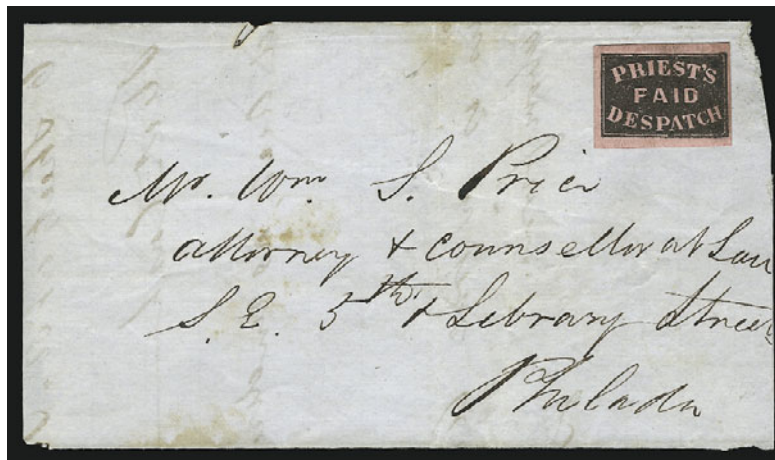 PRIEST'S
PAID
DESPATCH
Mr. Wm S. Price
Attorney & Counsellor at Law
S.E. 5th & Library Street
Philada